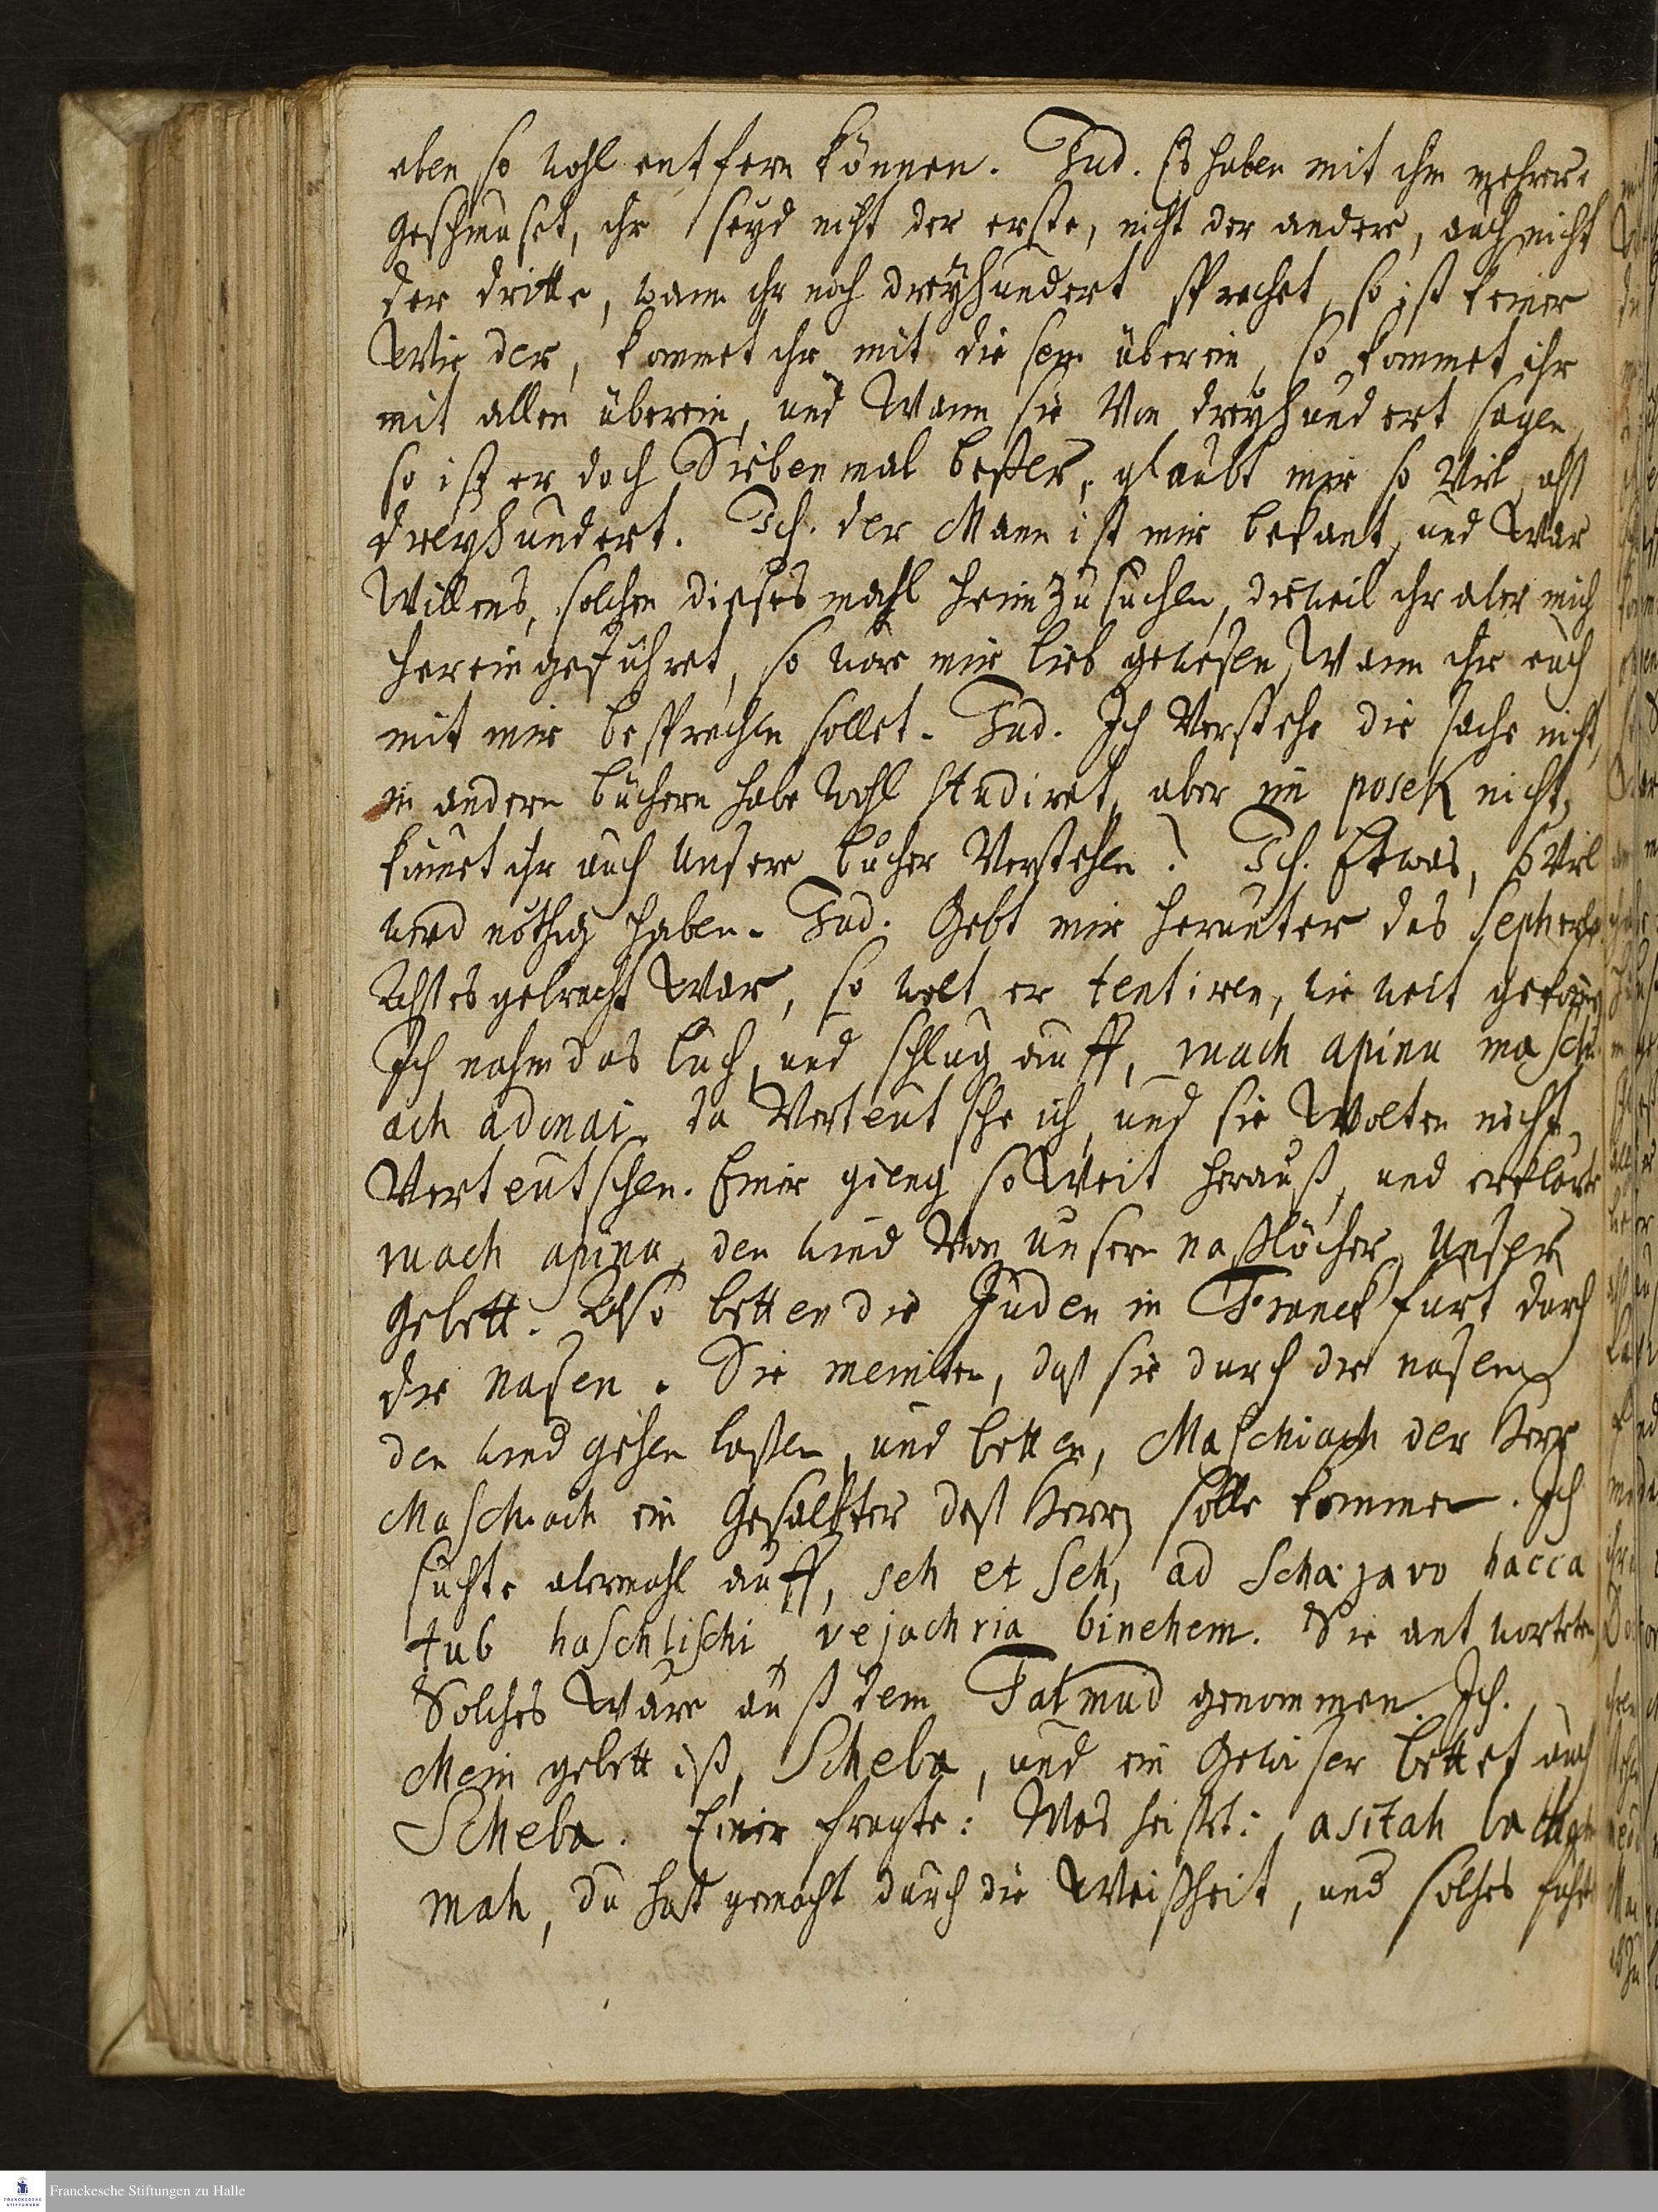 eben so wohl entfern können. Jud. Es haben mit ihm mehrere
geschmuset, ihr seyd nicht der erste, nicht der andere, auch nicht
der dritte, wann ihr noch dreyhundert sprechet, so ist keiner
wie der, kommet ihr mit diesem überein, so kommet ihr
mit allen überein, und wann sie von dreyhundert sagen,
so ist er doch Siebenmal beßer, glaubt mir so viel alß
dreyhundert. Ich. der Mann ist mir bekant, und war
Willens, solchen dieses mahl heimzusuchen, dieweil ihr aber mich
hereingeführet, so wäre mir lieb gewesen, wann ihr euch
mit mir besprechen sollet. Jud. Ich verstehe die sache nicht,
in andern büchern habe wohl studiret, aber im posek nicht,
könnet ihr auch unsere bücher verstehen? Ich. Etwas, so viel
werd nöthig haben. Jud. Gebt mir herunter das Sepher
Alß es gebracht war, so wolt er tentiren, wie weit
Ich nahm das buch, und schlug auff, ruach apinu maschi
ach adonai, da verteutsche ich, und sie wolten nicht
verteutschen. Einer gieng so weit herauß, und erklärte
ruach apinu, den wind von unsern naßlöcher, unser
gebett. Also betten die Juden in Franckfurt durch
die nasen. Sie meinten, daß sie durch die nasen
den wind gehen laßen, und betten, Maschiach der Herr
Maschiach ein Gesalbter deß Herrn solle kommen. Ich
suchte abermahl auff, seh et seh, ad Schajavo hacca
tub haschlischi vejachria binehem. Sie antworteten
Solches wäre auß dem Talmud genommen. Ich.
Mein gebett ist, Scheba, und ein Gewisser bettet auch
Scheba. Einer fragte: Was heist: asitah
mah, du hast gemacht durch die Weißheit, und solches
Franckesche Stiftungen zu Halle